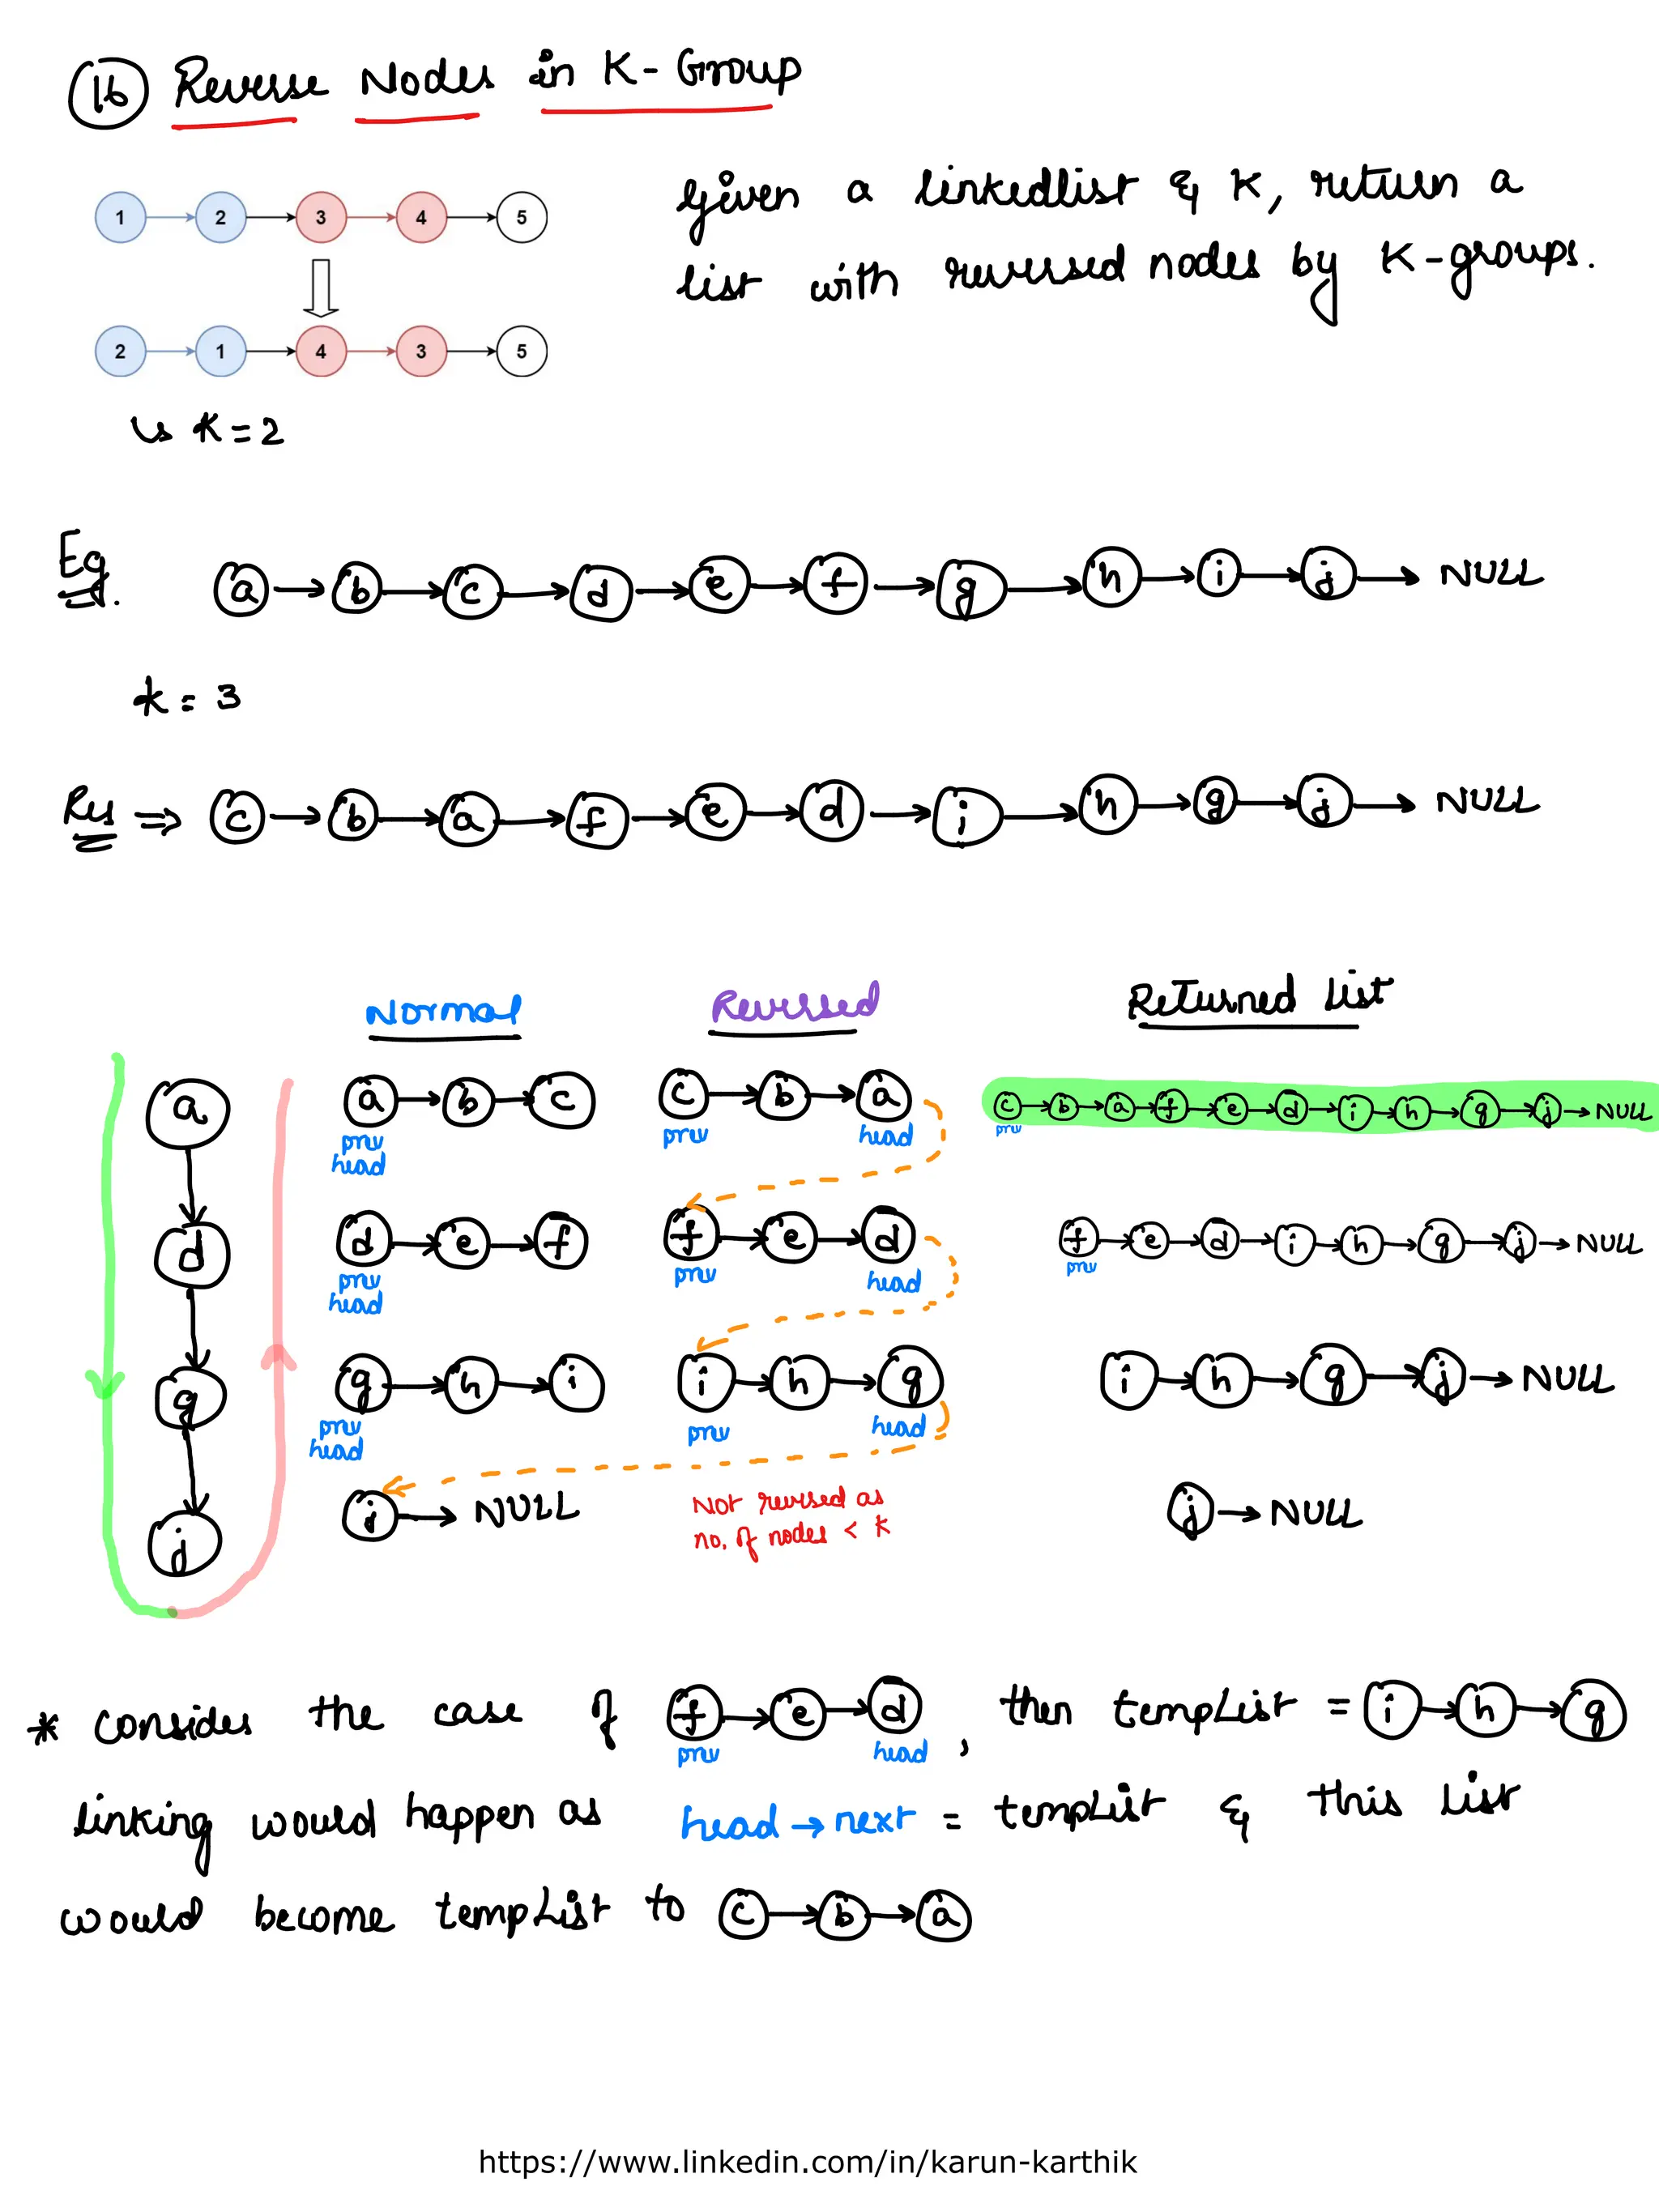 16 Reverse Nodes in K-Group
1 2 3 4 5
2 1 4 3 5
↳ K=2
given a linkedlist & K, return a
list with reversed nodes by K-groups.
Eg. a → b → c → d → e → f → g → h → i → j → NULL
k = 3
Res ⇒ c → b → a → f → e → d → i → h → g → j → NULL
Normal Reversed Returned list
a a → b → c c → b → a c → b → a → f → e → d → i → h → g → j → NULL
prev prev head prev
head
d d → e → f f → e → d f → e → d → i → h → g → j → NULL
prev prev head prev
head
g g → h → i i → h → g i → h → g → j → NULL
prev prev head
head
j j → NULL Not reversed as j → NULL
no. of nodes < k
* consider the case of f → e → d, then tempList = i → h → g
prev head
linking would happen as head → next = tempList & this list
would become tempList to c → b → a
https://www.linkedin.com/in/karun-karthik